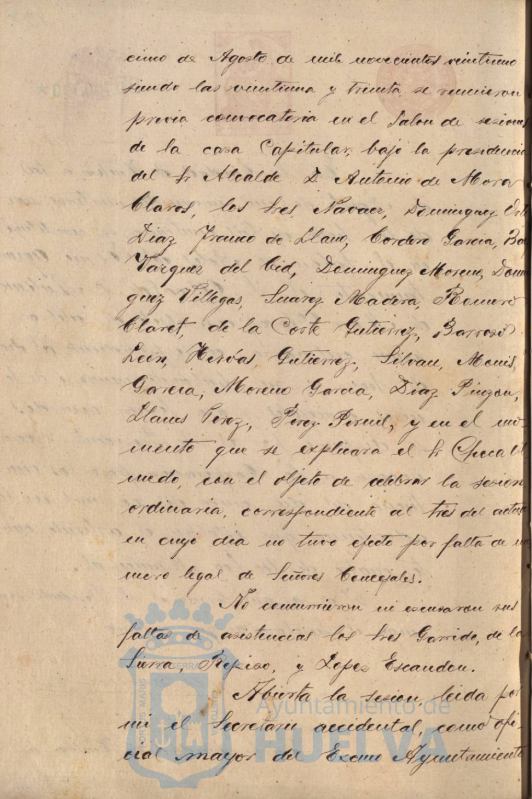 cinco de Agosto de mil novecientos veintiuno
siendo las veintiuna y treinta se reunieron
previa convocatoria en el Salon de sesiones
de la casa Capitular, bajo la presidencia
del Sr Alcalde D. Antonio de Mora
Claros, los Sres Navaez, Dominguez Ort
Diaz Franco de Llano, Cordero Garcia, Ba
Vazquez del Cid, Dominguez Moreno, Domin
guez Villegas, Suarez Madera, Romero
Claret, de la Corte Gutierrez, Barroso
Leon, Hervas Gutierrez, Silvan, Monis,
Garcia, Moreno Garcia, Diaz Pinzon,
Llanes Perez, Perez Porcil, y en el mo
mento que se explicará el Sr Checa Ol
medo, con el objeto de celebrar la sesion
ordinaria, correspondiente al tres del actual
en cuyo dia no tuvo efecto por falta de nu
mero legal de Señores Concejales.
No concurrieron ni escusaron sus
faltas de asistencias los Sres Garrido, de la
Surra, Repiso, y Lopez Escandon.
Abierta la sesion leida por
mi el Secretario accidental, como ofi
cial mayor del Excmo Ayuntamiento
Ayuntamiento de
HUELVA